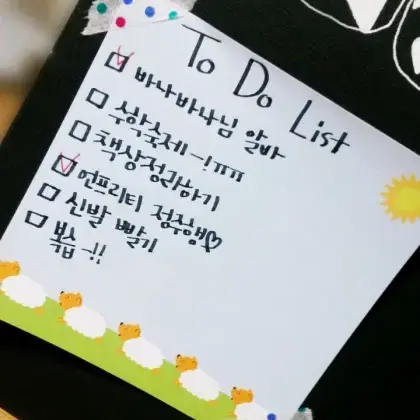 To Do List
바나바나님 알바
수학숙제-!ㅠㅠ
책상정리하기
언프리티 정주행♡
신발 빨기
복습-!!